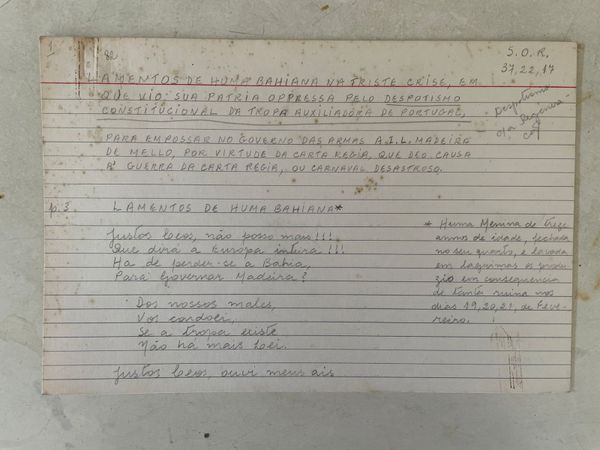 1
82
S.O.R.
37,22,17
LAMENTOS DE HUMA BAHIANA NA TRISTE CRISE, EM
QUE VIO SUA PATRIA OPPRESSA PELO DESPOTISMO
CONSTITUCIONAL DA TROPA AUXILIADORA DE PORTUGAL,
Despotismo
PARA EMPOSSAR NO GOVERNO DAS ARMAS A I.L. MADEIRA
DE MELLO, POR VIRTUDE DA CARTA REGIA, QUE DEO CAUSA
A' GUERRA DA CARTA REGIA, OU CARNAVAL DESASTROSO.
p.3 LAMENTOS DE HUMA BAHIANA*
Justos Ceos, não posso mais!!!
Que dirá a Europa inteira!!!
Ha de perder-se a Bahia,
Para Governar Madeira?
Dos nossos males,
Vos condoei,
Se a tropa existe
Não há mais Lei.
Justos Ceos, ouvi meus ais
* Huma Menina de treze
annos de idade, fechada
no seu quarto, e lavada
em lagrimas os produ-
zio em consequencia
de tanta ruina nos
dias 19, 20, 21, de Feve-
reiro.